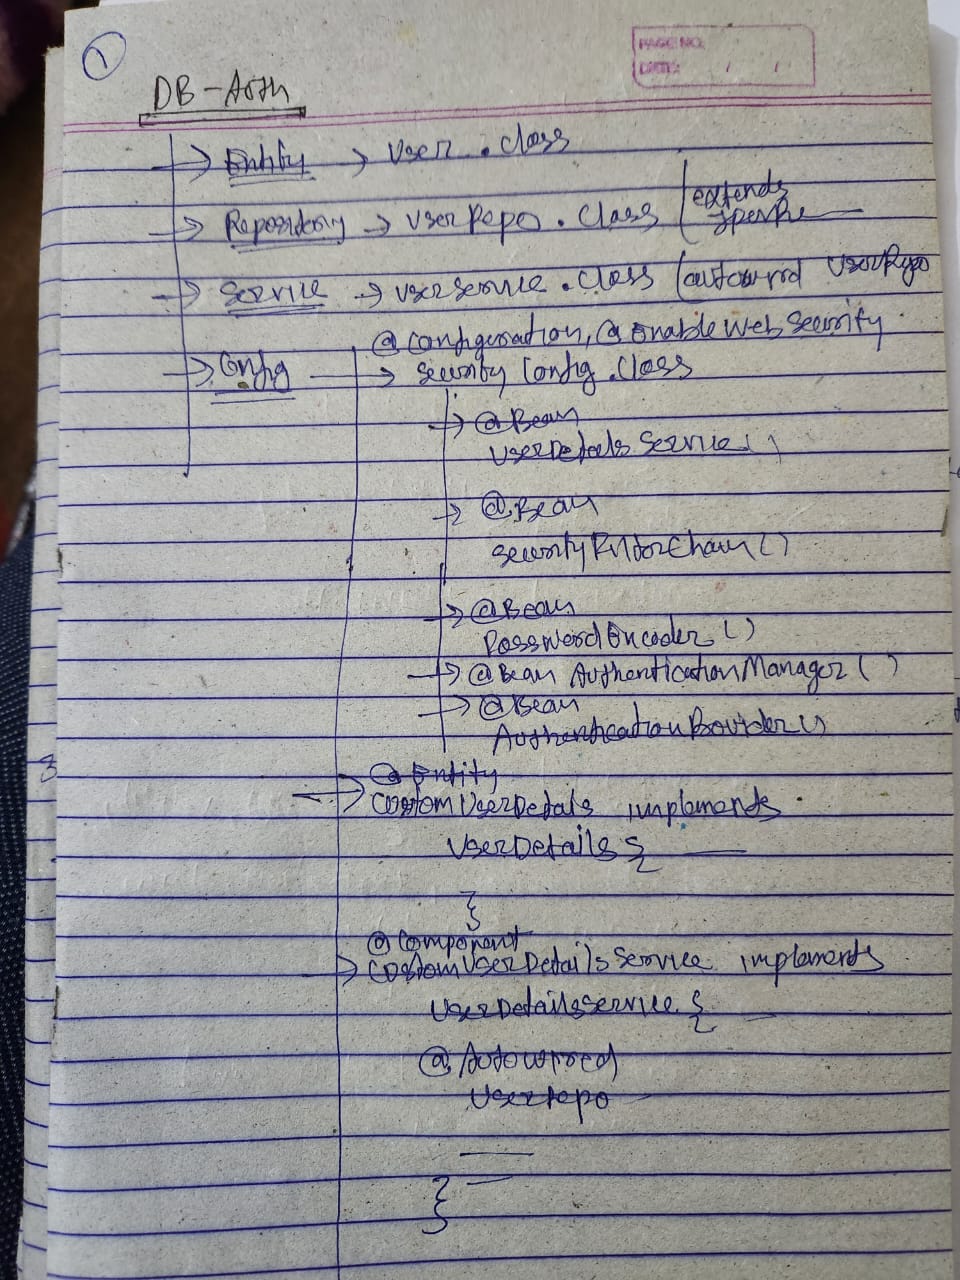 1
PAGE NO.
DATE: / /
DB-Auth
→ Entity → User.class
→ Repository → UserRepo.class (extends
→ Service → userservice.class (autowired UserRepo
@Configuration, @EnableWebSecurity
→ Config → Security Config.class
→ @Bean
UserDetails Service()
→ @Bean
SecurityFilterChain()
→ @Bean
PasswordEncoder()
→ @Bean AuthenticationManager()
→ @Bean
AuthenticationProvider()
3
@Entity
→ CustomUserDetails implements
UserDetails {
}
@Component
→ CustomUserDetailsService implements
UserDetailsService {
@Autowired
Userrepo
}